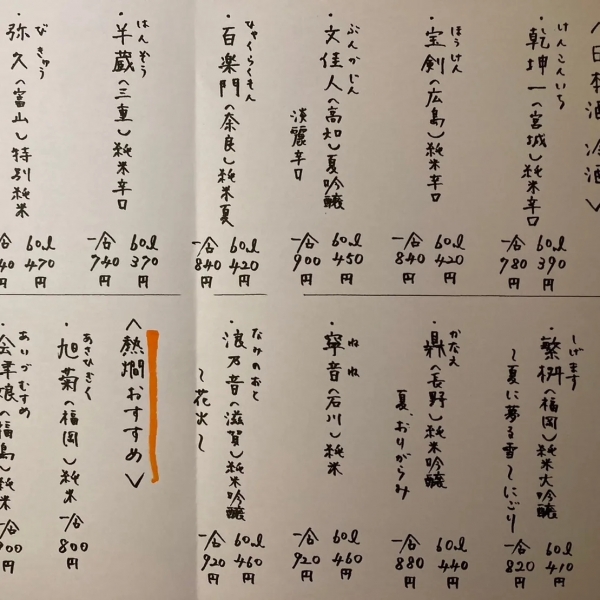 〈日本酒 冷酒〉
けんこんいち
・乾坤一（宮城）純米辛口
60ml 390円
一合 780円
ほうけん
・宝剣（広島）純米辛口
60ml 420円
一合 840円
ぶんかじん
・文佳人（高知）夏吟醸
淡麗辛口
60ml 450円
一合 900円
ひゃくらくもん
・百楽門（奈良）純米夏
60ml 420円
一合 840円
はんぞう
・半蔵（三重）純米辛口
60ml 370円
一合 740円
びきゅう
・弥久（富山）特別純米
60ml 470円
合 40円
しげます
・繁桝（福岡）純米大吟醸
〜夏に夢る雪〜にごり
60ml 410円
一合 820円
かなえ
・鼎（長野）純米吟醸
夏、おりがらみ
60ml 440円
一合 880円
ねね
・寧音（石川）純米
60ml 460円
一合 920円
なみのおと
・浪乃音（滋賀）純米吟醸
〜花火〜
60ml 460円
一合 920円
〈熱燗おすすめ〉
あさひぎく
・旭菊（福岡）純米
一合 800円
あいづむすめ
・会津娘（福島）純米
一合 900円